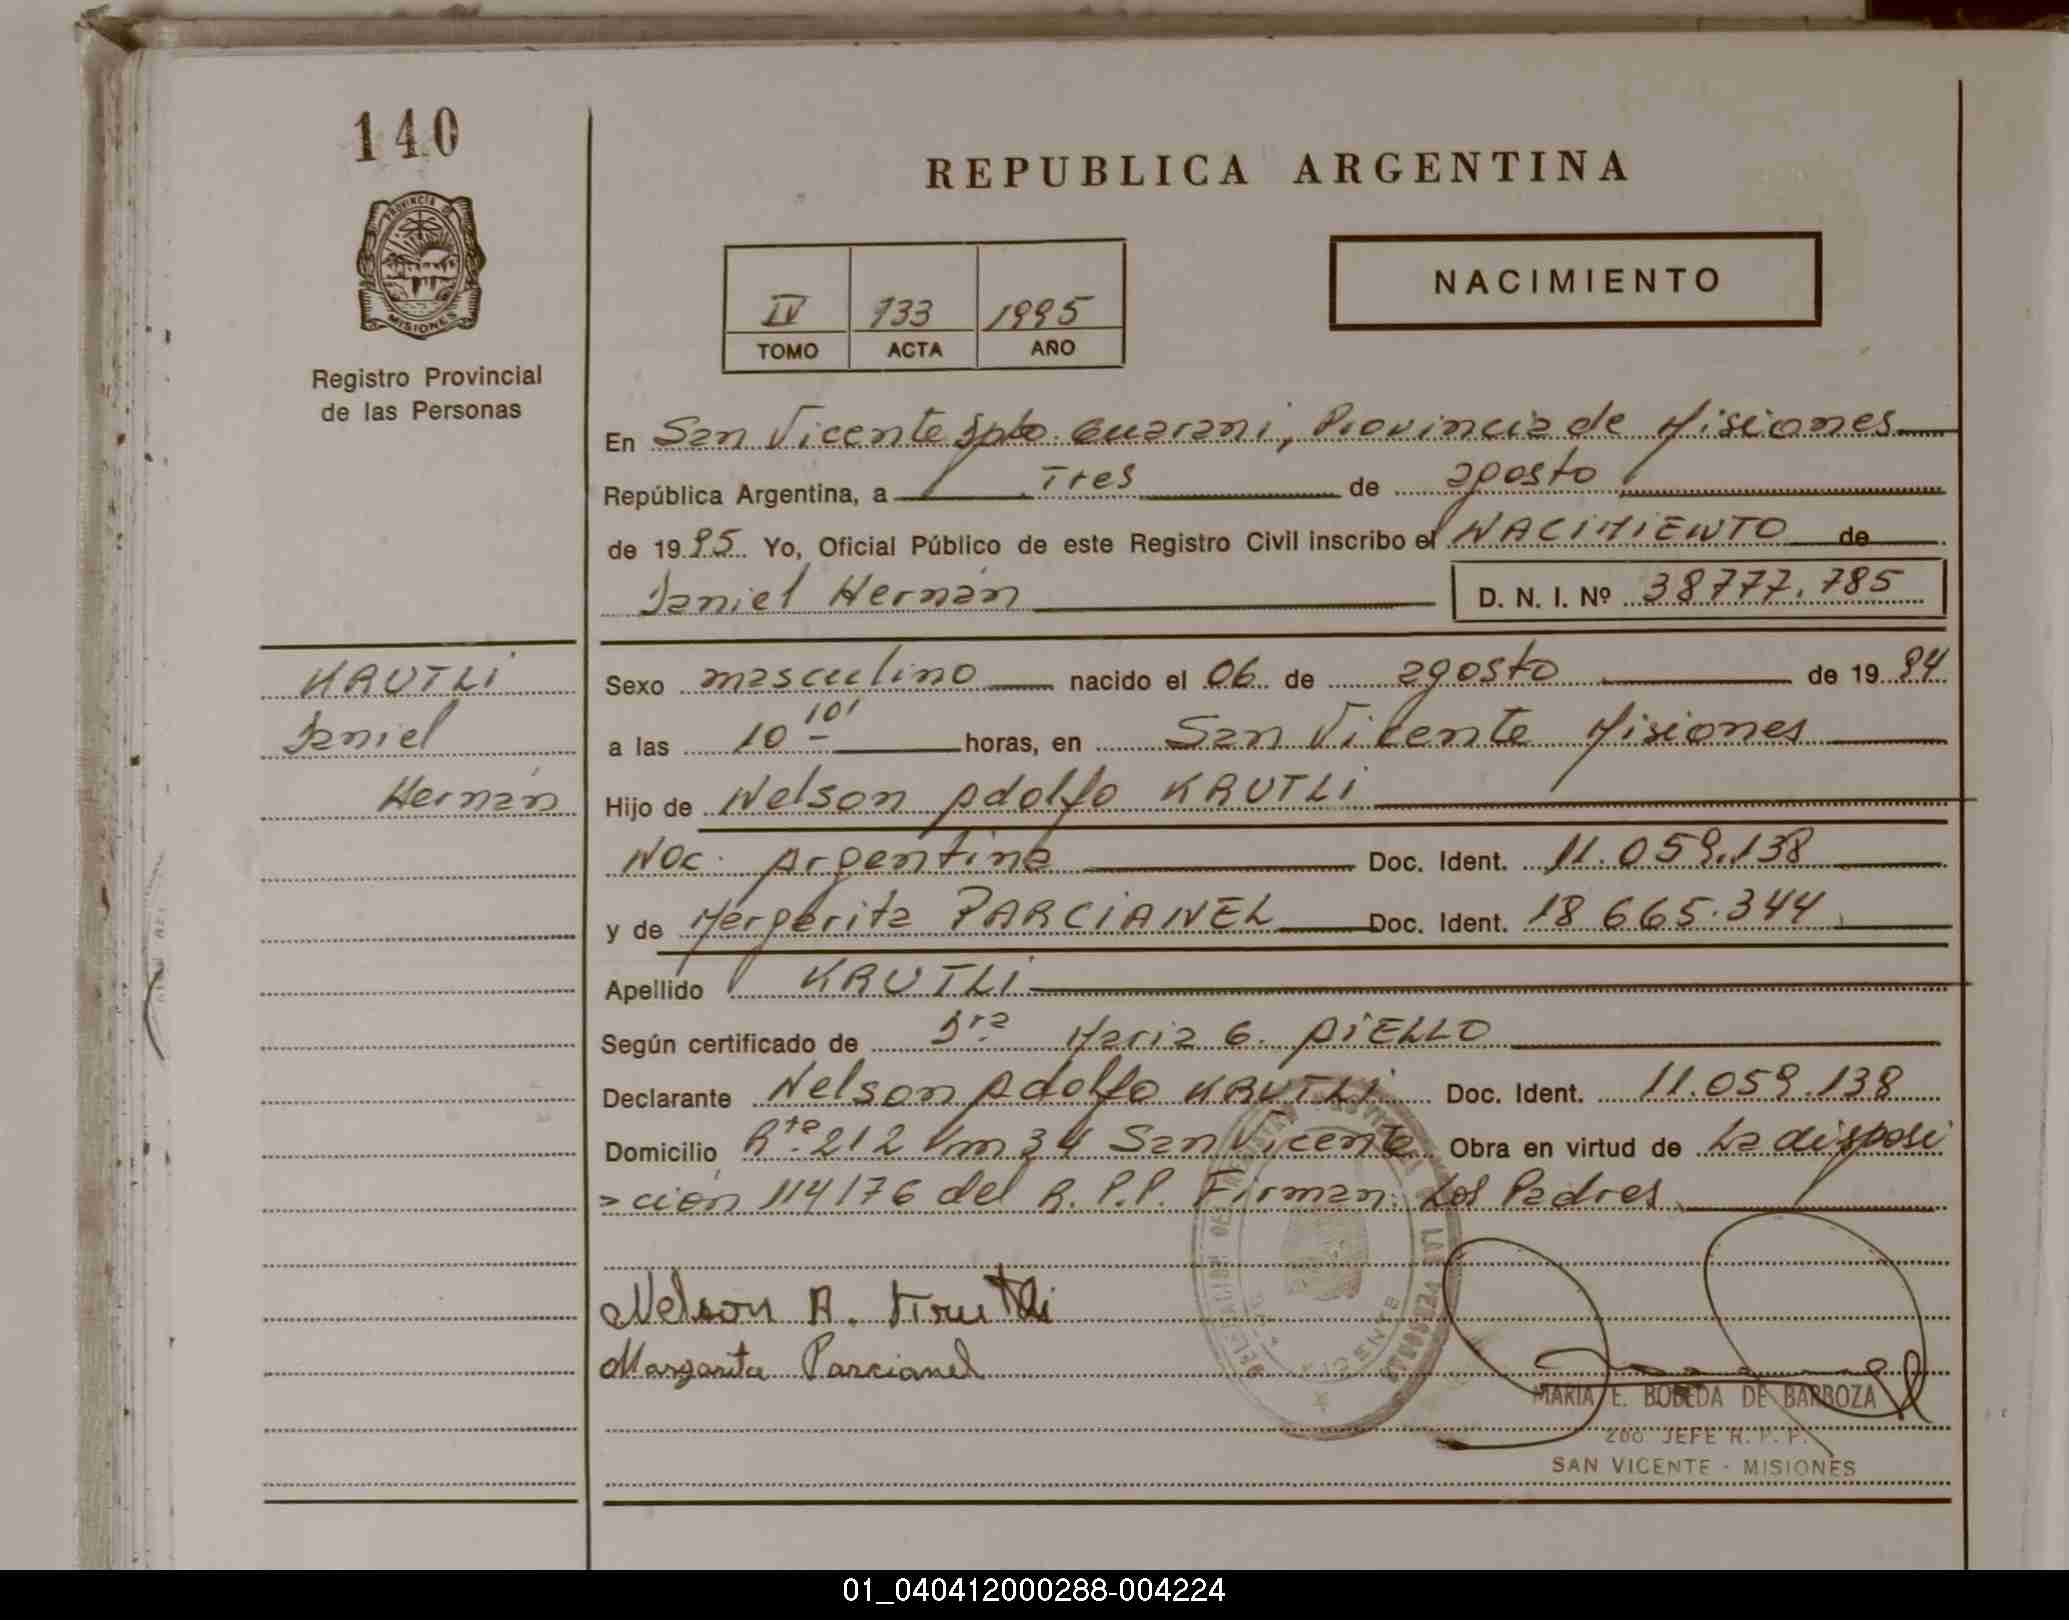 140
PROVINCIA DE
MISIONES
Registro Provincial
de las Personas
REPUBLICA ARGENTINA
NACIMIENTO
IV 133 1995
TOMO ACTA AÑO
En San Vicente Dpto. Guarani, Provincia de Misiones
República Argentina, a Tres de agosto
de 1995 Yo, Oficial Público de este Registro Civil inscribo el NACIMIENTO de
Daniel Hernán D. N. I. Nº 38777.785
KRUTLI
Daniel
Hernán
Sexo masculino nacido el 06 de agosto de 1994
a las 10 10' horas, en San Vicente Misiones
Hijo de Nelson Adolfo KRUTLI
Nac. Argentina Doc. Ident. 11.059.138
y de Margarita PARCIANEL Doc. Ident. 18 665.344
Apellido KRUTLI
Según certificado de Dra Maria G. AiELLO
Declarante Nelson Adolfo KRUTLI Doc. Ident. 11.059.138
Domicilio Rta 212 Km 34 San Vicente Obra en virtud de La disposi
ción 114/76 del R.P.P. Firman: Los Padres
Nelson A. Krutli
Margarita Parcianel
DE LAS PERSONAS
VICENTE
MARIA E. BOBEDA DE BARBOZA
2do JEFE R. P. P.
SAN VICENTE - MISIONES
01_040412000288-004224